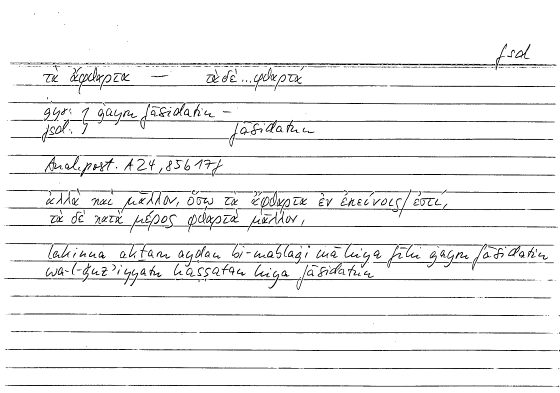 fsd
τὰ ἄφθαρτα — τὰ δὲ ... φθαρτά
ġyr: 1 ġayru fāsidatin —
fsd: 1 fāsidatun
Anal. post. A 24, 85b17f
ἀλλὰ καὶ μᾶλλον, ὅσῳ τὰ ἄφθαρτα ἐν ἐκείνοις ἐστί,
τὰ δὲ κατὰ μέρος φθαρτὰ μᾶλλον.
lākinna aktaru aydan bi-mablaġi mā hiya fīhi ġayru fāsidatin
wa-l-ǧuz'iyyatu hāssatan hiya fāsidatun